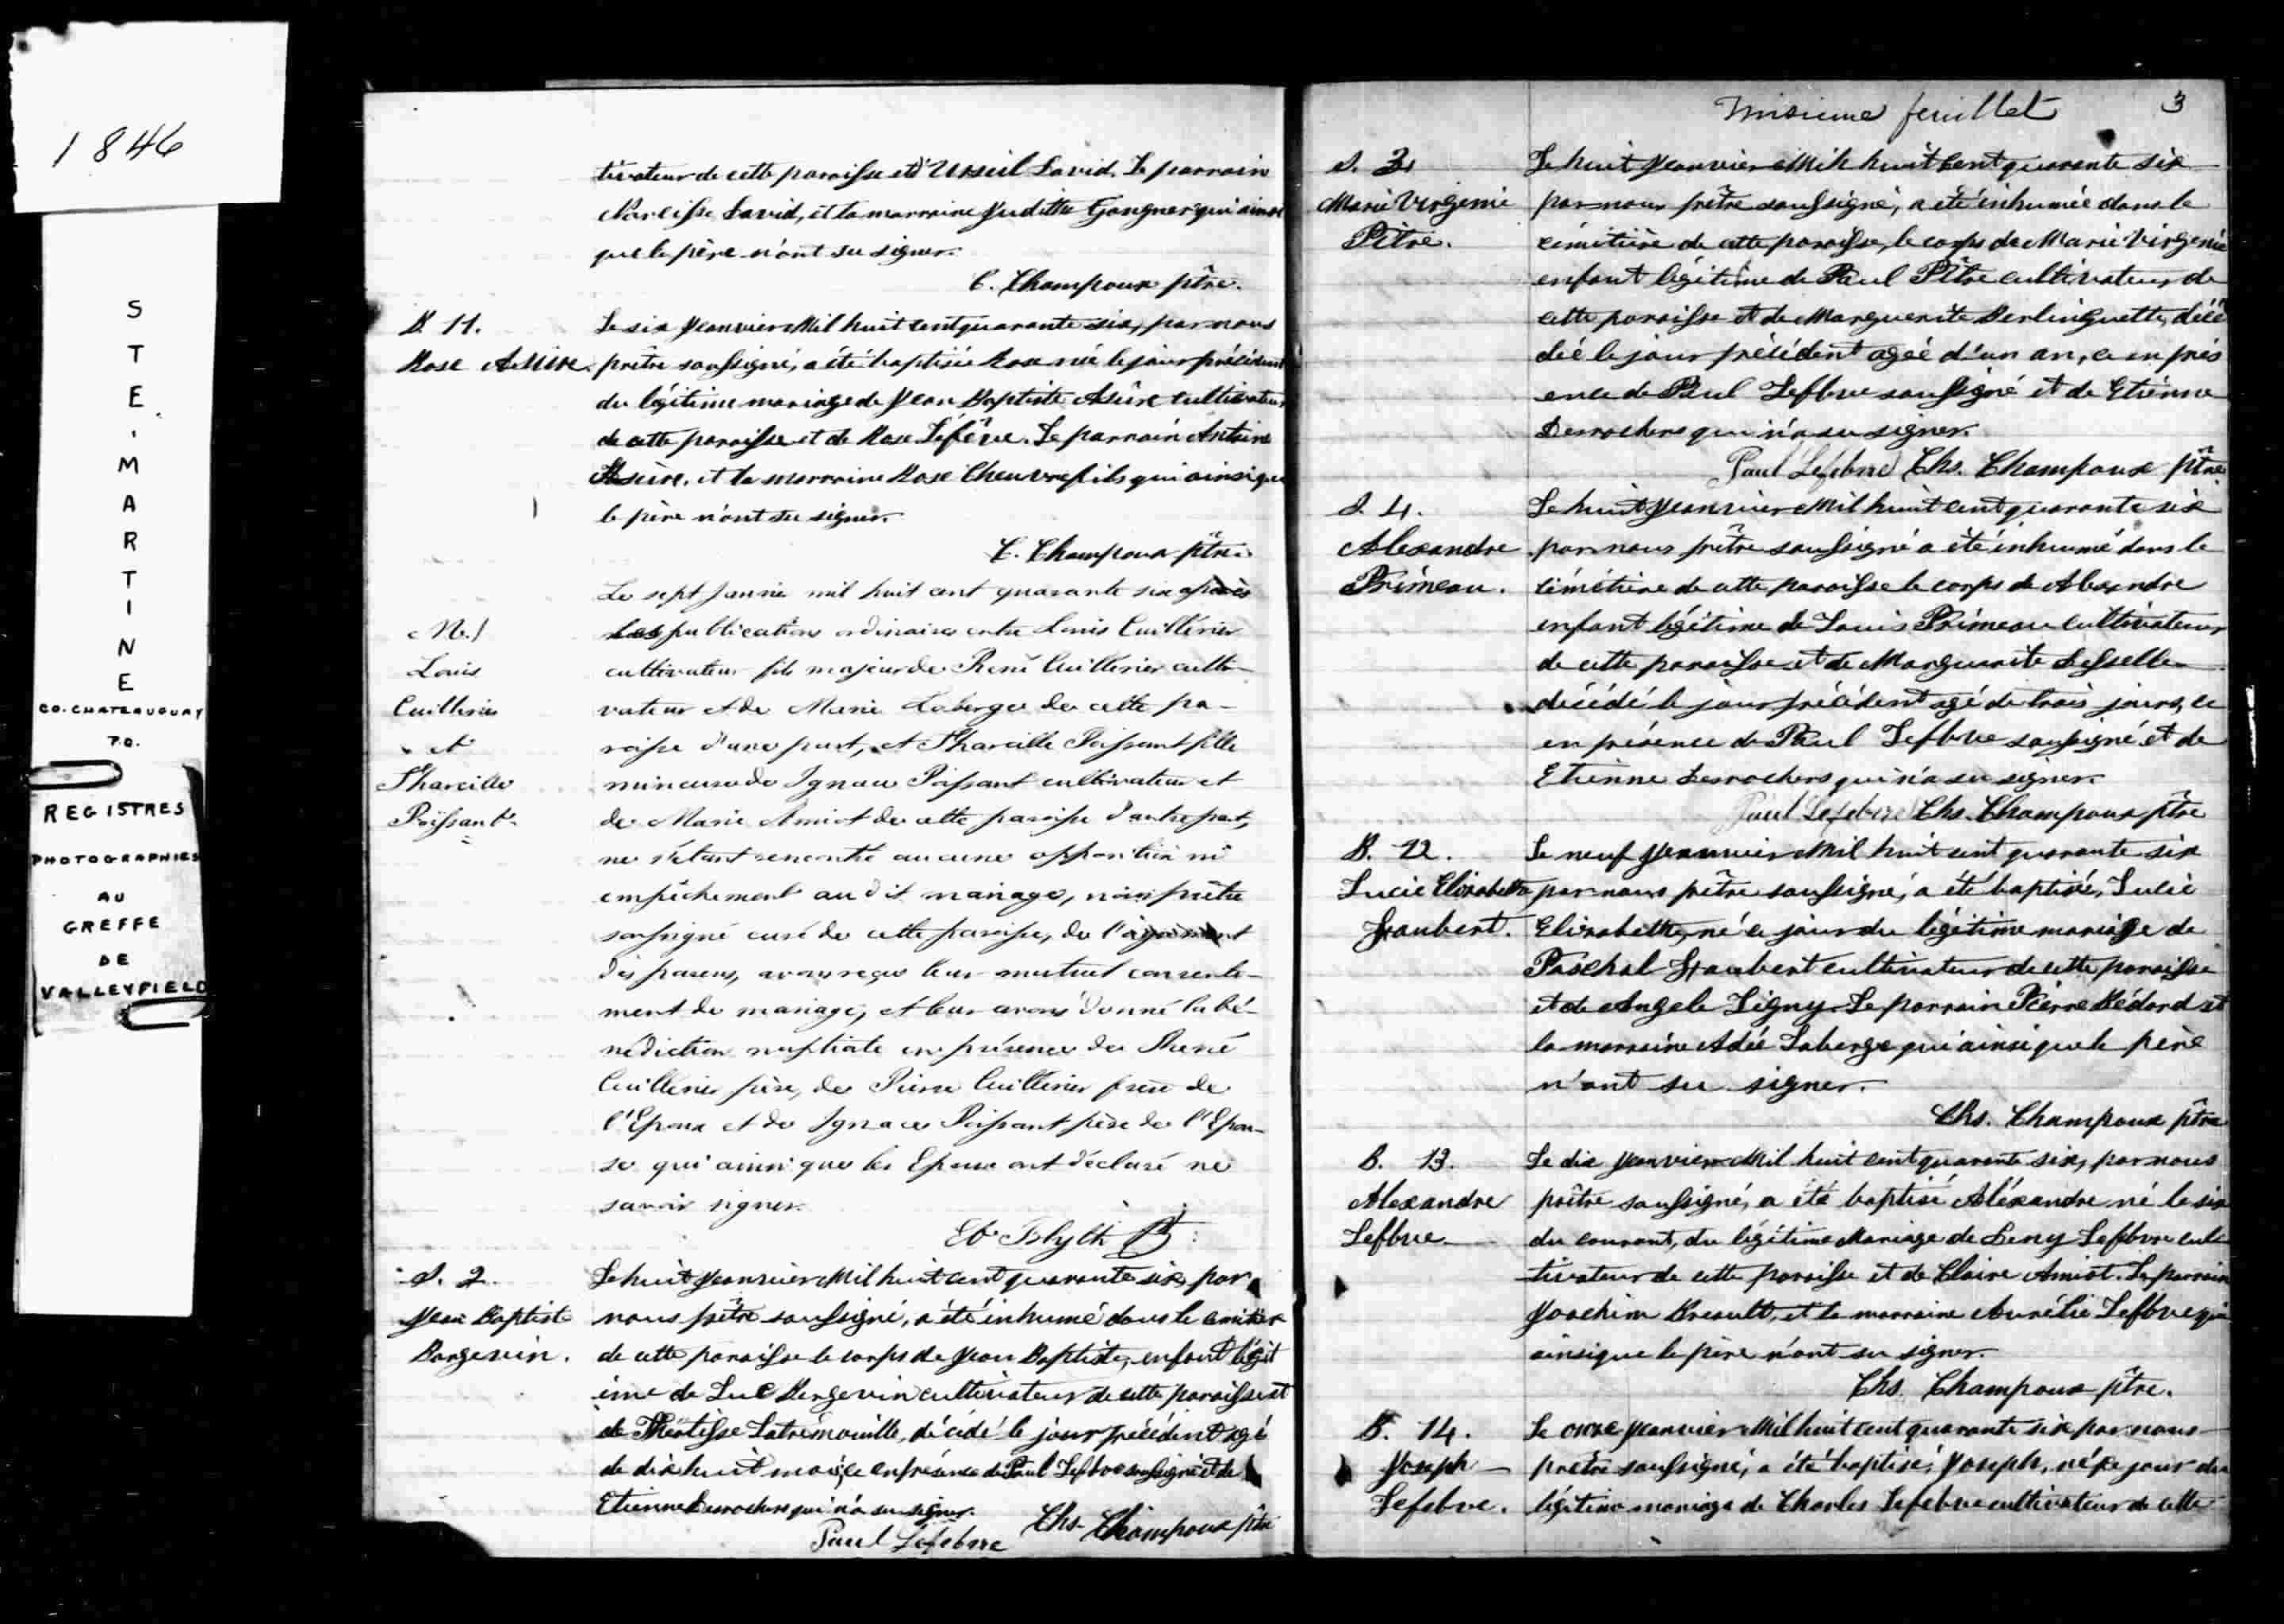 1846
STE. MARTINE
CO. CHATEAUGUAY
P.Q.
REGISTRES
PHOTOGRAPHIES
AU
GREFFE
DE
VALLEYFIELD
tivateur de cette paroisse et d'Ursuil David. Le parrain
Narcisse David, et la marraine Juditte Gangner qui ainsi
que le père n'ont su signer.
C. Champoux ptre.
B. 11.
Rose
Le six Janvier Mil huit cent quarante six, par nous
prêtre soussigné, a été baptisée Rose née le jour précédent
du légitime mariage de Jean Baptiste cultivateur
de cette paroisse et de Rose Lefêve. Le parrain Antoine
et la marraine Rose Cheuvrefils qui ainsi que
le père n'ont su signer.
C. Champoux ptre
M. 1
Louis
Cuillerier
et
Tharcille
Poissant
Le sept Janvier mil huit cent quarante six après
les publications ordinaires entre Louis Cuillérier
cultivateur fils majeur de René Cuillérier culti-
vateur et de Marie Laberge de cette pa-
roisse d'une part, et Tharcille Poissant fille
mineure de Ignace Poissant cultivateur et
de Marie Amiot de cette paroisse d'autre part,
ne s'étant rencontré aucune opposition ni
empêchement au dit mariage, nous prêtre
soussigné curé de cette paroisse, de l'agrément
des parens, avons reçu leur mutuel consente-
ment de mariage, et leur avons donné la bé-
nédiction nuptiale en présence de René
Cuillerier père, de Pierre Cuillerier frère de
l'Epoux et de Ignace Poissant père de l'Epou-
se qui ainsi que les Epoux ont déclaré ne
savoir signer.
Blyth
S. 2.
Jean Baptiste
Bergevin.
Le huit Janvier Mil huit cent quarante six, par
nous prêtre soussigné, a été inhumé dans le cimitière
de cette paroisse le corps de Jean Baptiste, enfant légit
ime de Luc Bergevin cultivateur de cette paroisse et
de Théotisse Latrémouille, décédé le jour précédent agé
de dix huit mois, ce en présence de Paul Lefbve soussigné et de
Etienne Desrochers qui n'a su signer.
Paul Lefebvre Chs. Champoux ptre
troisieme feuillet
3
S. 3.
Marie Virgenie
Pitre.
Le huit Janvier Mil huit Cent quarante six
par nous prêtre soussigné, a été inhumée dans le
cimitière de cette paroisse, le corps de Marie Virgenie
enfant légitime de Paul Pitre cultivateur de
cette paroisse et de Marguerite Berlinguette, décé
dée le jour précédent agée d'un an, ce en prés
ence de Paul Lefbve soussigné et de Etienne
Desrochers qui n'a su signer.
Paul Lefebvre Chs. Champoux ptre
S. 4.
Alexandre
Primeau.
Le huit Janvier Mil huit cent quarante six
par nous prêtre soussigné a été inhumé dans le
cimétière de cette paroisse le corps de Alexandre
enfant légitime de Louis Primeau cultivateur
de cette paroisse et de Marguerite Desselle
décédé le jour précédent agé de trois jours, ce
en présence de Paul Lefbve soussigné et de
Etienne Desrochers qui n'a su signer.
Paul Lefebvre Chs. Champoux ptre
B. 12.
Lucie Elizabette
Haubert.
Le neuf Janvier Mil huit cent quarante six
par nous prêtre soussigné, a été baptisé, Lucie
Elizabette, né ce jour du légitime mariage de
Paschal Haubert cultivateur de cette paroisse
et de Angele Ligny. Le parrain Pierre Bédard et
la marraine Adée Laberge qui ainsi que le père
n'ont su signer.
Chs. Champoux ptre
B. 13.
Alexandre
Lefbve
Le dix Janvier Mil huit cent quarante six, par nous
prêtre soussigné, a été baptisé Aléxandre né le six
du courant, du légitime Mariage de Leny Lefebvre cul
tivateur de cette paroisse et de Claire Amiot. Le parrain
Joachim Breault, et la marraine Aurélie Lefbve qui
ainsi que le père n'ont su signer.
Chs. Champoux ptre.
B. 14.
Joseph
Lefebve.
Le onze Janvier Mil huit cent quarante six par nous
prêtre soussigné, a été baptisé, Joseph, né ce jour du
légitime mariage de Charles Lefebve cultivateur de cette